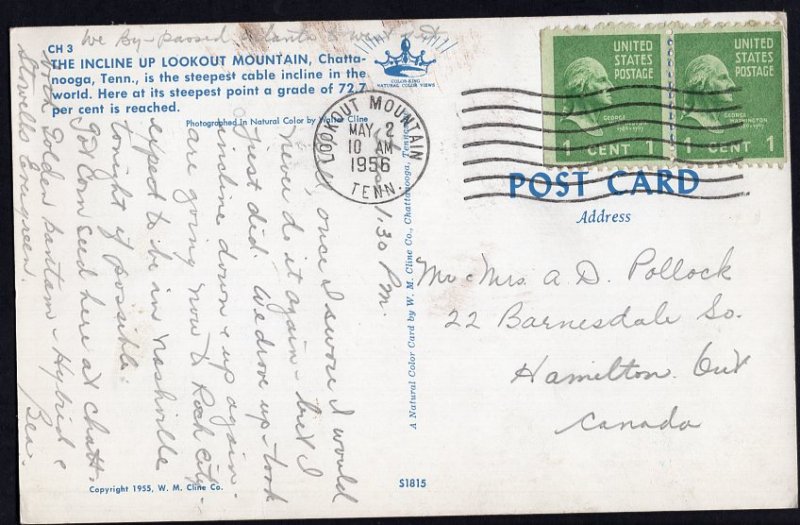 We By-passed Atlanta & went
CH 3
THE INCLINE UP LOOKOUT MOUNTAIN, Chatta-
nooga, Tenn., is the steepest cable incline in the
world. Here at its steepest point a grade of 72.7
per cent is reached.
Photographed in Natural Color by Walter Cline
COLOR-KING
NATURAL COLOR VIEWS
LOOKOUT MOUNTAIN
MAY 2
10 AM
1956
TENN.
UNITED
STATES
POSTAGE
GEORGE
WASHINGTON
1 CENT 1
UNITED
STATES
POSTAGE
GEORGE
WASHINGTON
1 CENT 1
POST CARD
Address
Mr Mrs. A D. Pollock
22 Barnesdale So.
Hamilton. Ont
Canada
1:30 P.M.
Well, once I swore I would
never do it again - but I
just did. We drove up - took
incline down & up again.
are going now to Rock City -
expect to be in Nashville
tonight if possible.
got corn seed here at Chatt.
both Golden Bantam Hybrid &
Stowells Evergreen.
Bea.
A Natural Color Card by W. M. Cline Co., Chattanooga, Tennessee
Copyright 1955, W. M. Cline Co.
S1815